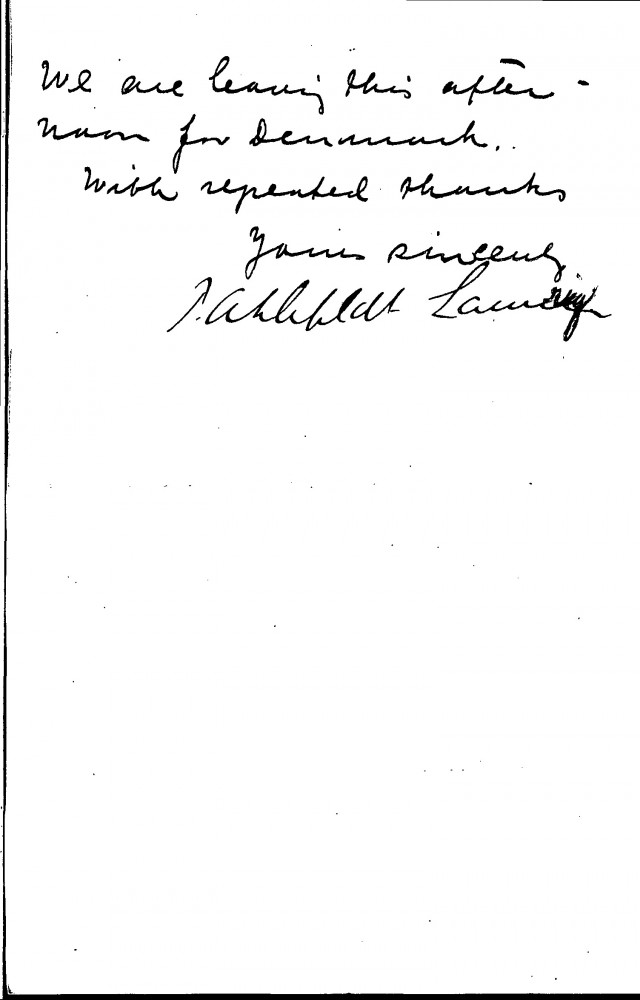 We are leaving this after-
noon for Denmark.
With repeated thanks
Yours sincerely
Ahlefeldt Laurvig